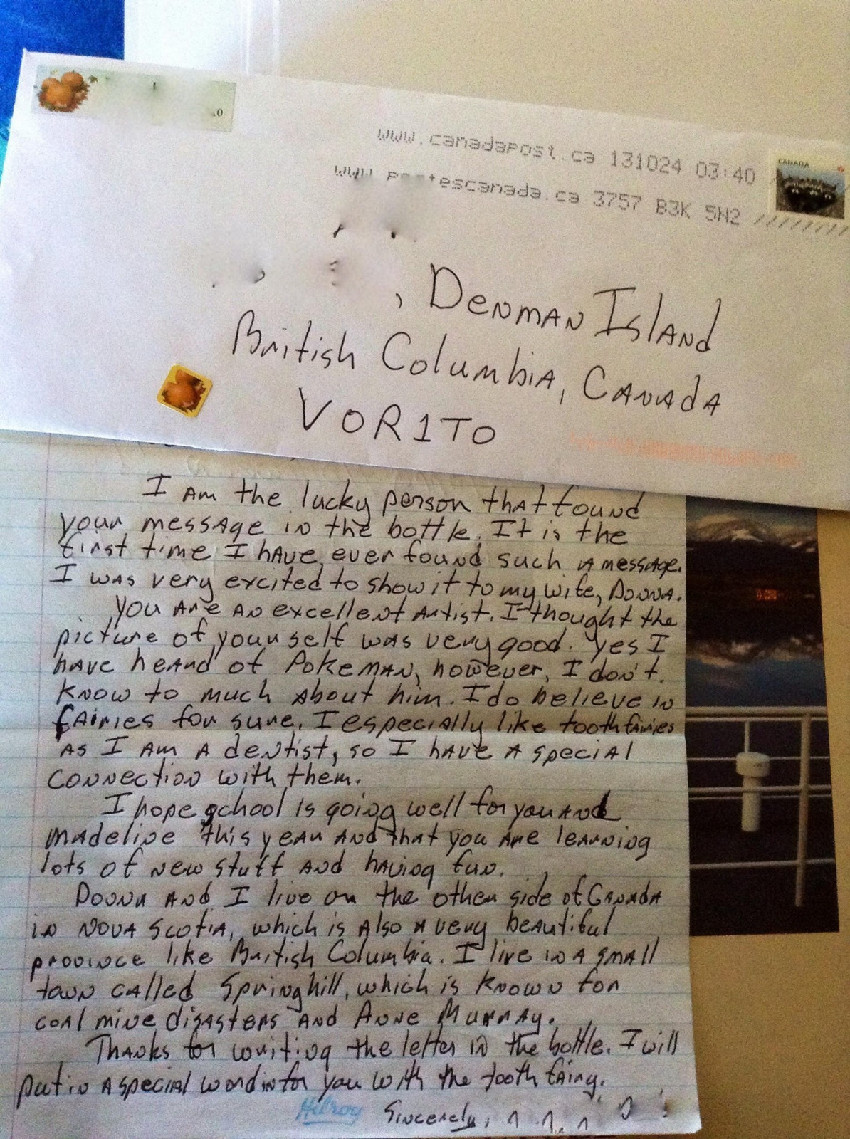 www.canadapost.ca 131024 03:40
www.postescanada.ca 3757 B3K 5N2
CANADA
, Denman Island
British Columbia, Canada
V0R1T0
I am the lucky person that found
your message in the bottle. It is the
first time I have ever found such a message.
I was very excited to show it to my wife, Donna.
You are an excellent artist. I thought the
picture of yourself was very good. Yes I
have heard of Pokeman, however, I don't
know to much about him. I do believe in
fairies for sure. I especially like tooth fairies
as I am a dentist, so I have a special
connection with them.
I hope school is going well for you and
madeline this year and that you are learning
lots of new stuff and having fun.
Donna and I live on the other side of Canada
in Nova Scotia, which is also a very beautiful
province like British Columbia. I live in a small
town called Springhill, which is known for
coal mine disasters and Anne Murray.
Thanks for writing the letter in the bottle. I will
put in a special word in for you with the tooth fairy.
Hilroy
Sincerely,